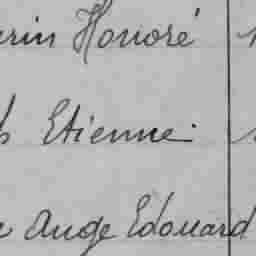 Honoré
Etienne
Ange Edouard